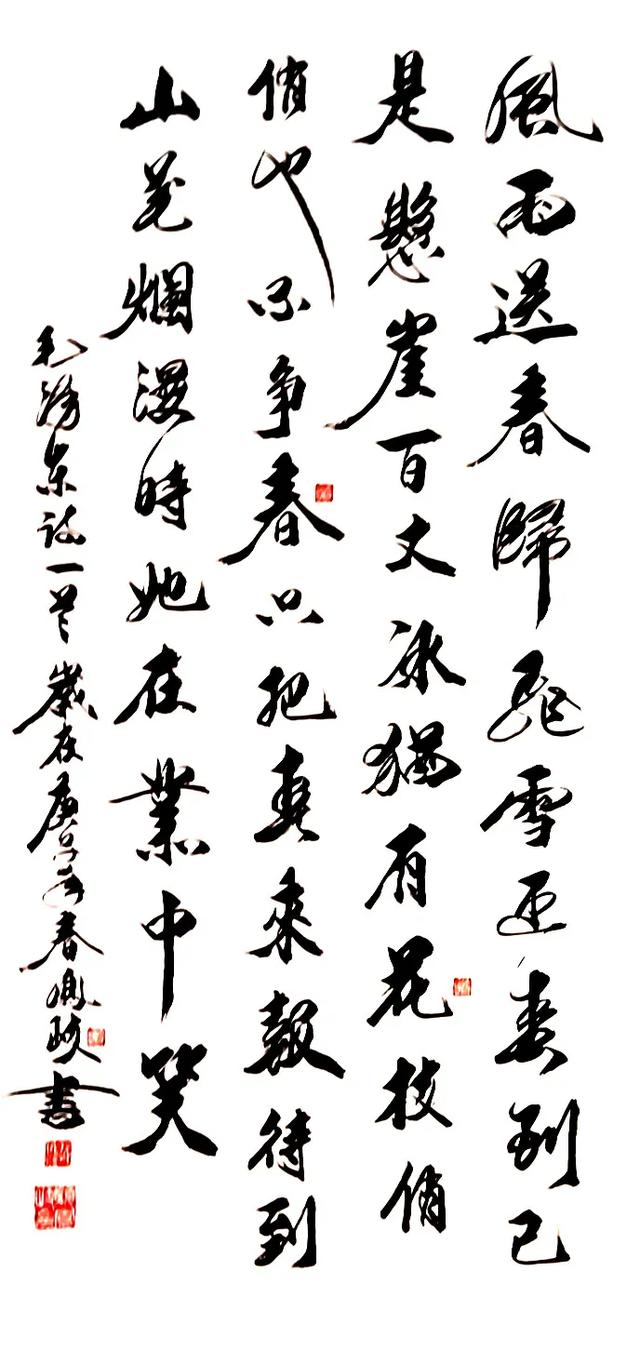 風雨送春歸飛雪迎春到已
是懸崖百丈冰猶有花枝俏
俏也不争春只把春來報待到
山花爛漫時她在叢中笑
毛澤東詞一首歲在庚子年春鳳岐書